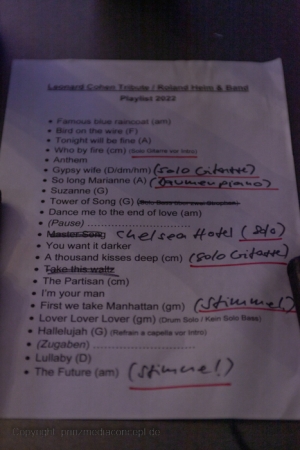 Leonard Cohen Tribute / Roland Helm & Band
Playlist 2022
• Famous blue raincoat (am)
• Bird on the wire (F)
• Tonight will be fine (A)
• Who by fire (cm) (Solo Gitarre vor Intro)
• Anthem
• Gypsy wife (D/dm/hm) (Solo Gitarre)
• So long Marianne (A) (Daumenpiano)
• Suzanne (G)
• Tower of Song (G)
• Dance me to the end of love (am)
• (Pause) ..............................
• Master Song Chelsea Hotel (Solo)
• You want it darker
• A thousand kisses deep (cm) (Solo Gitarre)
• Take this waltz
• The Partisan (cm)
• I'm your man
• First we take Manhattan (gm) (Stimmel)
• Lover Lover Lover (gm) (Drum Solo / Kein Solo Bass)
• Hallelujah (G) (Refrain a capella vor Intro)
• (Zugaben) ..............................
• Lullaby (D)
• The Future (am) (Stimme!)
Copyright: prinzmediaconcept.de